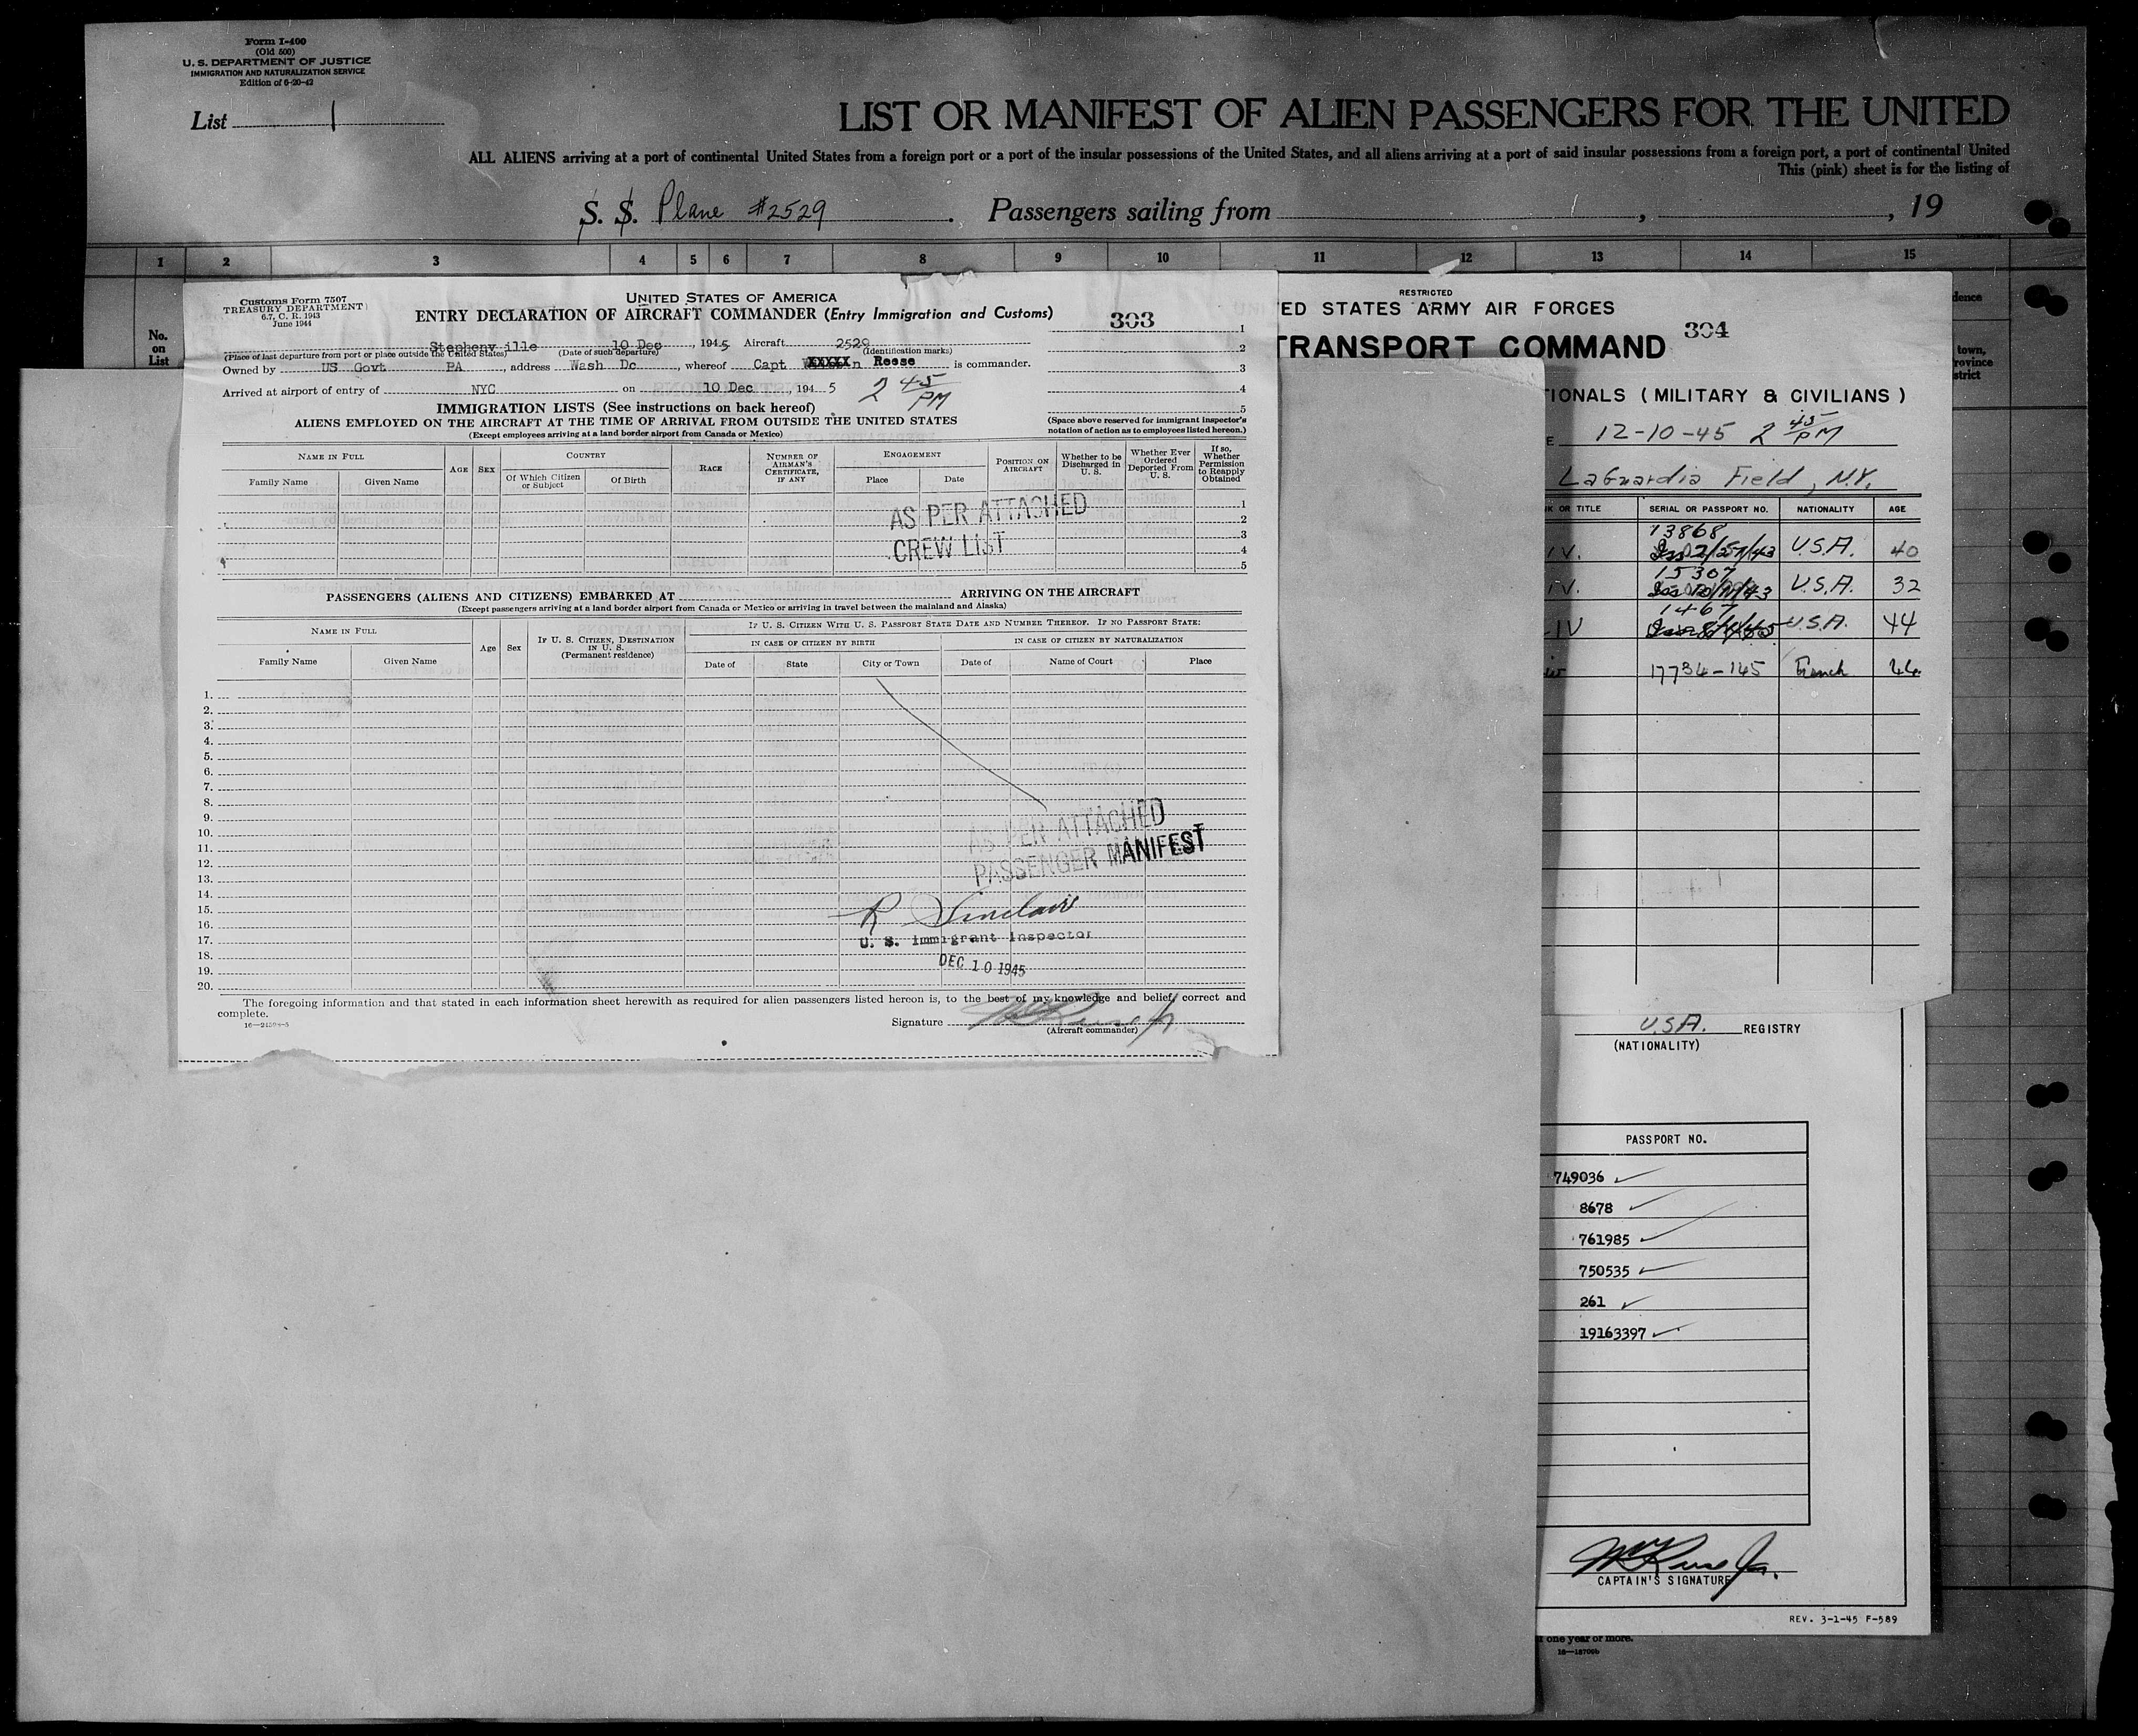 Form I-400
(Old 500)
U. S. DEPARTMENT OF JUSTICE
IMMIGRATION AND NATURALIZATION SERVICE
Edition of 6-20-42
List 1
LIST OR MANIFEST OF ALIEN PASSENGERS FOR THE UNITED
ALL ALIENS arriving at a port of continental United States from a foreign port or a port of the insular possessions of the United States, and all aliens arriving at a port of said insular possessions from a foreign port, a port of continental United
This (pink) sheet is for the listing of
S. S. Plane #2529 . Passengers sailing from , , 19
1 2 3 4 5 6 7 8 9 10 11 12 13 14 15
No.
on
List
Customs Form 7507
TREASURY DEPARTMENT
6.7, C. R. 1943
June 1944
UNITED STATES OF AMERICA
ENTRY DECLARATION OF AIRCRAFT COMMANDER (Entry Immigration and Customs)
303
Stephenville 10 Dec , 1945 Aircraft 2529
(Place of last departure from port or place outside the United States) (Date of such departure) (Identification marks)
Owned by US Govt PA , address Wash Dc , whereof Capt XXXXX n Reese is commander.
Arrived at airport of entry of NYC on 10 Dec , 194 5 2 45 PM
1
2
3
4
5
IMMIGRATION LISTS (See instructions on back hereof)
ALIENS EMPLOYED ON THE AIRCRAFT AT THE TIME OF ARRIVAL FROM OUTSIDE THE UNITED STATES
(Except employees arriving at a land border airport from Canada or Mexico)
(Space above reserved for immigrant inspector's
notation of action as to employees listed hereon.)
NAME IN FULL
Family Name Given Name
AGE SEX
COUNTRY
Of Which Citizen or Subject Of Birth
RACE
NUMBER OF AIRMAN'S CERTIFICATE, IF ANY
ENGAGEMENT
Place Date
POSITION ON AIRCRAFT
Whether to be Discharged in U. S.
Whether Ever Ordered Deported From U. S.
If so, Whether Permission to Reapply Obtained
AS PER ATTACHED
CREW LIST
1
2
3
4
5
PASSENGERS (ALIENS AND CITIZENS) EMBARKED AT ARRIVING ON THE AIRCRAFT
(Except passengers arriving at a land border airport from Canada or Mexico or arriving in travel between the mainland and Alaska)
NAME IN FULL
Family Name Given Name
Age Sex
IF U. S. CITIZEN, DESTINATION IN U. S.
(Permanent residence)
IF U. S. CITIZEN WITH U. S. PASSPORT STATE DATE AND NUMBER THEREOF. IF NO PASSPORT STATE:
IN CASE OF CITIZEN BY BIRTH IN CASE OF CITIZEN BY NATURALIZATION
Date of State City or Town Date of Name of Court Place
1.
2.
3.
4.
5.
6.
7.
8.
9.
10.
11.
12.
13.
14.
15.
16.
17.
18.
19.
20.
AS PER ATTACHED
PASSENGER MANIFEST
R Sinclair
U. S. Immigrant Inspector
DEC 10 1945
The foregoing information and that stated in each information sheet herewith as required for alien passengers listed hereon is, to the best of my knowledge and belief, correct and
complete.
16-24504-5
Signature
(Aircraft commander)
RESTRICTED
ED STATES ARMY AIR FORCES
TRANSPORT COMMAND 304
IONALS (MILITARY & CIVILIANS)
E 12-10-45 2 45 PM
LaGuardia Field, N.Y.
K OR TITLE SERIAL OR PASSPORT NO. NATIONALITY AGE
13868
IV. U.S.A. 40
15307
IV. U.S.A. 32
1467
IV U.S.A. 44
17734-145 French
dence
town,
rovince
strict
U.S.A. REGISTRY
(NATIONALITY)
PASSPORT NO.
749036
8678
761985
750535
261
19163397
CAPTAIN'S SIGNATURE
REV. 3-1-45 F-589
one year or more.